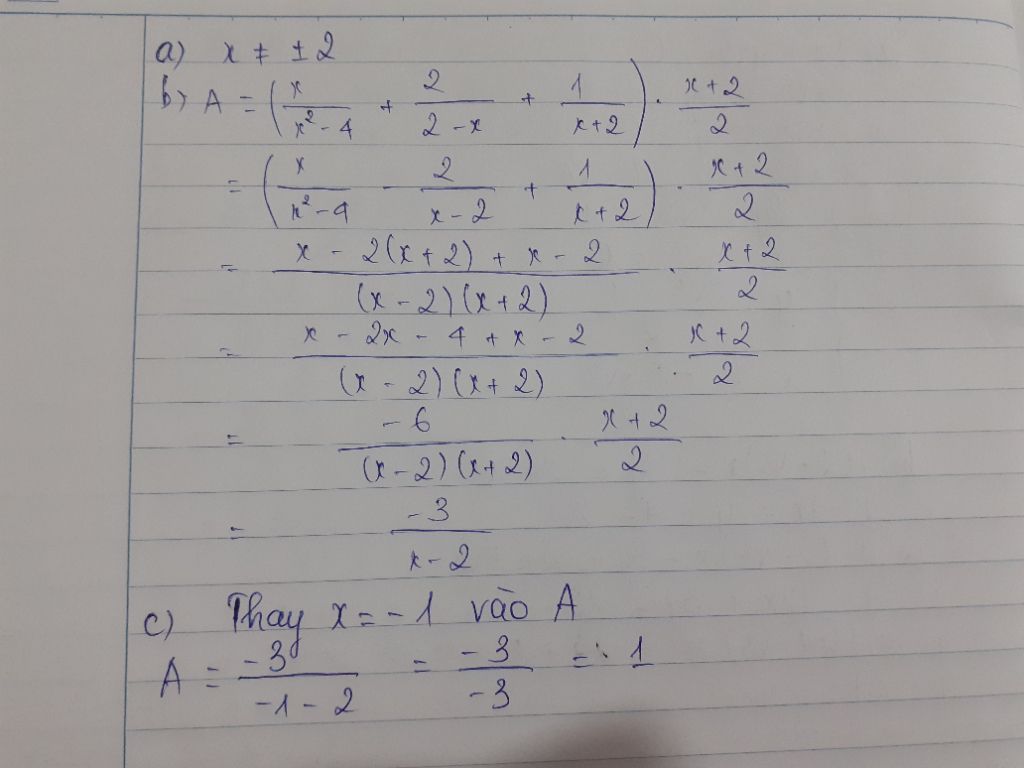 a) x ≠ ± 2
b) A = (x/(x² - 4) + 2/(2 - x) + 1/(x + 2)) . (x + 2)/2
= (x/(x² - 4) - 2/(x - 2) + 1/(x + 2)) . (x + 2)/2
= (x - 2(x + 2) + x - 2)/((x - 2)(x + 2)) . (x + 2)/2
= (x - 2x - 4 + x - 2)/((x - 2)(x + 2)) . (x + 2)/2
= -6/((x - 2)(x + 2)) . (x + 2)/2
= -3/(x - 2)
c) Thay x = - 1 vào A
A = -3/(-1 - 2) = -3/-3 = 1